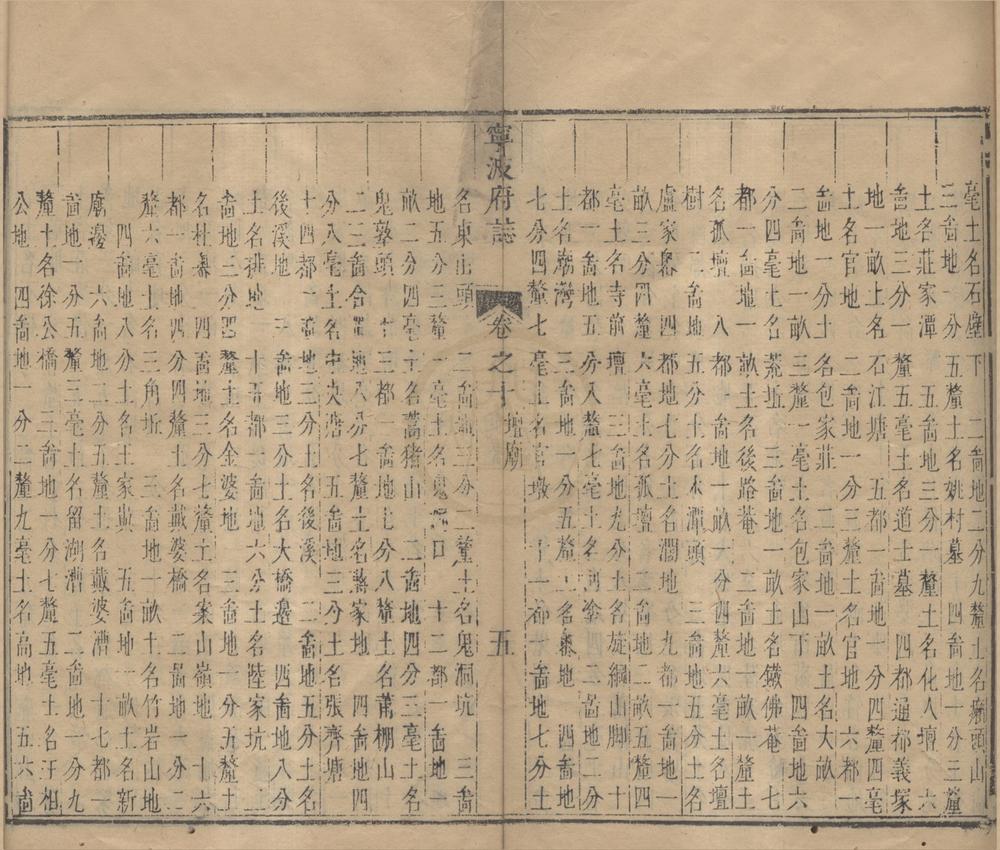 毫土名石塵下 一啚地二分九釐土名癆頭山
三啚地一分五釐土名姚村墓 十四啚地一分三釐
土名莊家潭 五啚地三分一釐土名化人壇 六
啚地三分一釐五毫土名道士墓 四都通都義塚
地一畝土名石江塘 五都一啚地十分四釐四毫
土名官地 二啚地一分三釐土名官地 六都一
啚地一分土名包家莊 二啚地一畝土名大畝
二啚地一畝三釐一毫土名包家山下 四啚地六
分四毫土名荒坵 三啚地一畝土名鐵佛菴 七
都一啚地一畝土名後路菴 二啚地十畝一釐土
名孤壇 八都一啚地一畝六分四釐六毫土名壇
樹 二啚地五分土名水潭頭 三啚地五分土名
盧家墓 四都地七分土名澗地 九都一啚地一
畝三分四釐六毫土名孤壇 二啚地二畝五釐四
毫土名寺前壇 三啚地九分土名旋綱山脚 十
都一啚地五分八釐七毫土名河塗 四二啚地二分
土名廟灣 三啚地一分五釐土名墓地 四啚地
七分四釐七毫土名官墩 十一都一啚地七分土
寧波府誌 卷之十 壇廟 五
名東山頭 二啚地三分二釐土名鬼洞坑 三啚
地五分三釐一毫土名鬼 口 十二都一啚地一
畝二分四毫土名蒿猪山 二啚地四分三毫土名
鬼墊頭 十三都一啚地七分八釐土名蕭棚山
二三啚合 地八分七釐土名蔣家地 四啚地四
分八毫土名中央漕 五啚地三分土名張齊塘
十四都一啚地三分土名後溪 二啚地五分土名
後溪地 三啚地三分土名大橋邊 四啚地八分
土名排地 十五都一啚地六分土名陸家坑 二
啚地三分四釐土名金婆地 三啚地一分五釐土
名杜墓 四啚地三分七釐土名案山嶺地 十六
都一啚地四分四釐土名戴婆橋 二啚地一分二
釐六毫土名三角坵 三啚地一畝土名竹岩山地
四啚地八分土名王家 五啚地一畝土名新
廟邊 六啚地二分五釐土名戴婆漕 十七都一
啚地一分五釐三毫土名留湖漕 二啚地一分九
釐土名徐公橋 三啚地一分七釐五毫土名汗相
公地 四啚地一分二釐九毫土名高地 五六啚